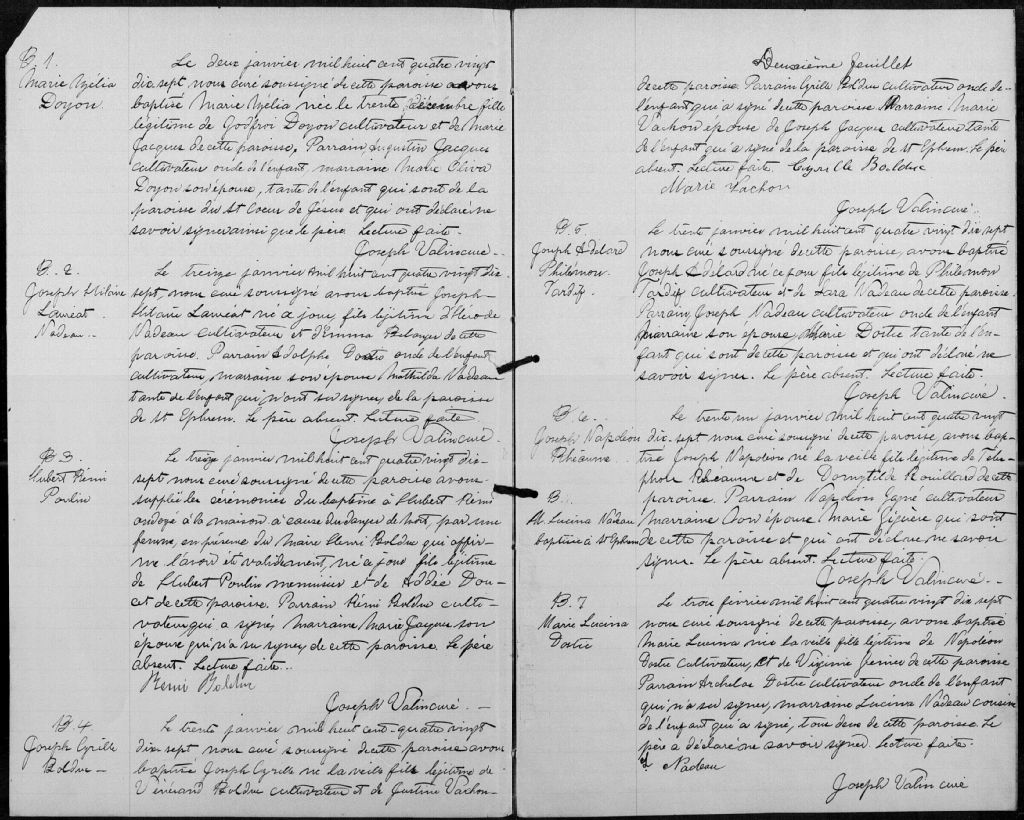 B. 1.
Marie Azélia
Doyon.
Le deux janvier mil huit cent quatre vingt
dix sept, nous curé soussigné de cette paroisse avons
baptisé Marie Azélia née le trente, décembre fille
légitime de Godfroi Doyon cultivateur et de Marie
Jacques de cette paroisse. Parrain Augustin Jacques
cultivateur oncle de l'enfant, marraine Marie Oliva
Doyon son épouse, tante de l'enfant qui sont de la
paroisse du St Coeur de Jésus et qui ont déclaré ne
savoir signer ainsi que le père Lecture faite.
Joseph Valin curé.
B. 2.
Joseph Hilaire
Lauréat
Nadeau.
Le treize janvier mil huit cent quatre vingt dix
sept, nous curé soussigné avons baptisé Joseph
Hilaire Lauréat né ce jour, fils légitime d'
Nadeau cultivateur et d'Emma Belanger de cette
paroisse. Parrain Adolphe Dostie oncle de l'enfant
cultivateur, marraine son épouse Mathilda Nadeau
tante de l'enfant qui n'ont su signer, de la paroisse
de St Ephrem. Le père absent. Lecture faite
Joseph Valin curé.
B. 3.
Hubert Rémi
Poulin
Le treize janvier mil huit cent quatre vingt dix
sept nous curé soussigné de cette paroisse avons
suppléé les cérémonies du baptême à Hubert Rémi
ondoyé à la maison à cause du danger de mort, par une
femme, en présence du Maire Henri Bolduc qui affir-
me l'avoir été validement, né ce jour fils légitime
de Hubert Poulin menuisier et de Addée Dou-
cet de cette paroisse. Parrain Rémi Bolduc culti-
vateur qui a signé, Marraine Marie Jacques son
épouse qui n'a su signer, de cette paroisse. Le père
absent. Lecture faite..
Remi Bolduc
Joseph Valin curé.
B. 4
Joseph Cyrille
Bolduc
Le trente janvier mil huit cent quatre vingt
dix sept nous curé soussigné de cette paroisse avons
baptisé Joseph Cyrille né la veille fils légitime de
Vénérand Bolduc cultivateur et de Justine Vachon
Deuxième feuillet
de cette paroisse. Parrain Cyrille Bolduc cultivateur oncle de
l'enfant qui a signé de cette paroisse Marraine Marie
Vachon épouse de Joseph Jacques cultivateur tante
de l'enfant qui a signé de la paroisse de St Ephrem. Le père
absent. Lecture faite. Cyrille Bolduc
Marie Vachon
Joseph Valin curé.
B. 5.
Joseph Adélard
Philémon
Tardif.
Le trente janvier mil huit cent quatre vingt dix sept
nous curé soussigné de cette paroisse, avons baptisé
Joseph Adélard né ce jour fils légitime de Philémon
Tardif cultivateur et de Sara Nadeau de cette paroisse.
Parrain Joseph Nadeau cultivateur oncle de l'enfant
marraine son épouse, Marie Dostie tante de l'en-
fant qui sont de cette paroisse et qui ont déclaré ne
savoir signer. Le père absent. Lecture faite.
Joseph Valin curé.
B. 6.
Joseph Napoléon
Rhéaume.
Le trente un janvier mil huit cent quatre vingt
dix sept nous curé soussigné de cette paroisse, avons bap-
tisé Joseph Napoléon né la veille fils légitime de Téles-
phore Rhéaume et de Domytilde Rouillard de cette
paroisse. Parrain Napoléon Gagné cultivateur
Marraine Son épouse Marie Giguère qui sont
de cette paroisse et qui ont déclaré ne savoir
signer. Le père absent. Lecture faite.
Joseph Valin curé.
B.
M. Lucina Nadeau
baptisée à St Ephrem
B. 7
Marie Lucina
Dostie
Le trois février mil huit cent quatre vingt dix sept
nous curé soussigné de cette paroisse, avons baptisé
Marie Lucina née la veille fille légitime de Napoléon
Dostie cultivateur, et de Virginie Vernier de cette paroisse
Parrain Archelas Dostie cultivateur oncle de l'enfant
qui n'a su signer, marraine Lucina Nadeau cousine
de l'enfant qui a signé, tous deux de cette paroisse. Le
père a déclaré ne savoir signer. Lecture faite.
L Nadeau
Joseph Valin curé